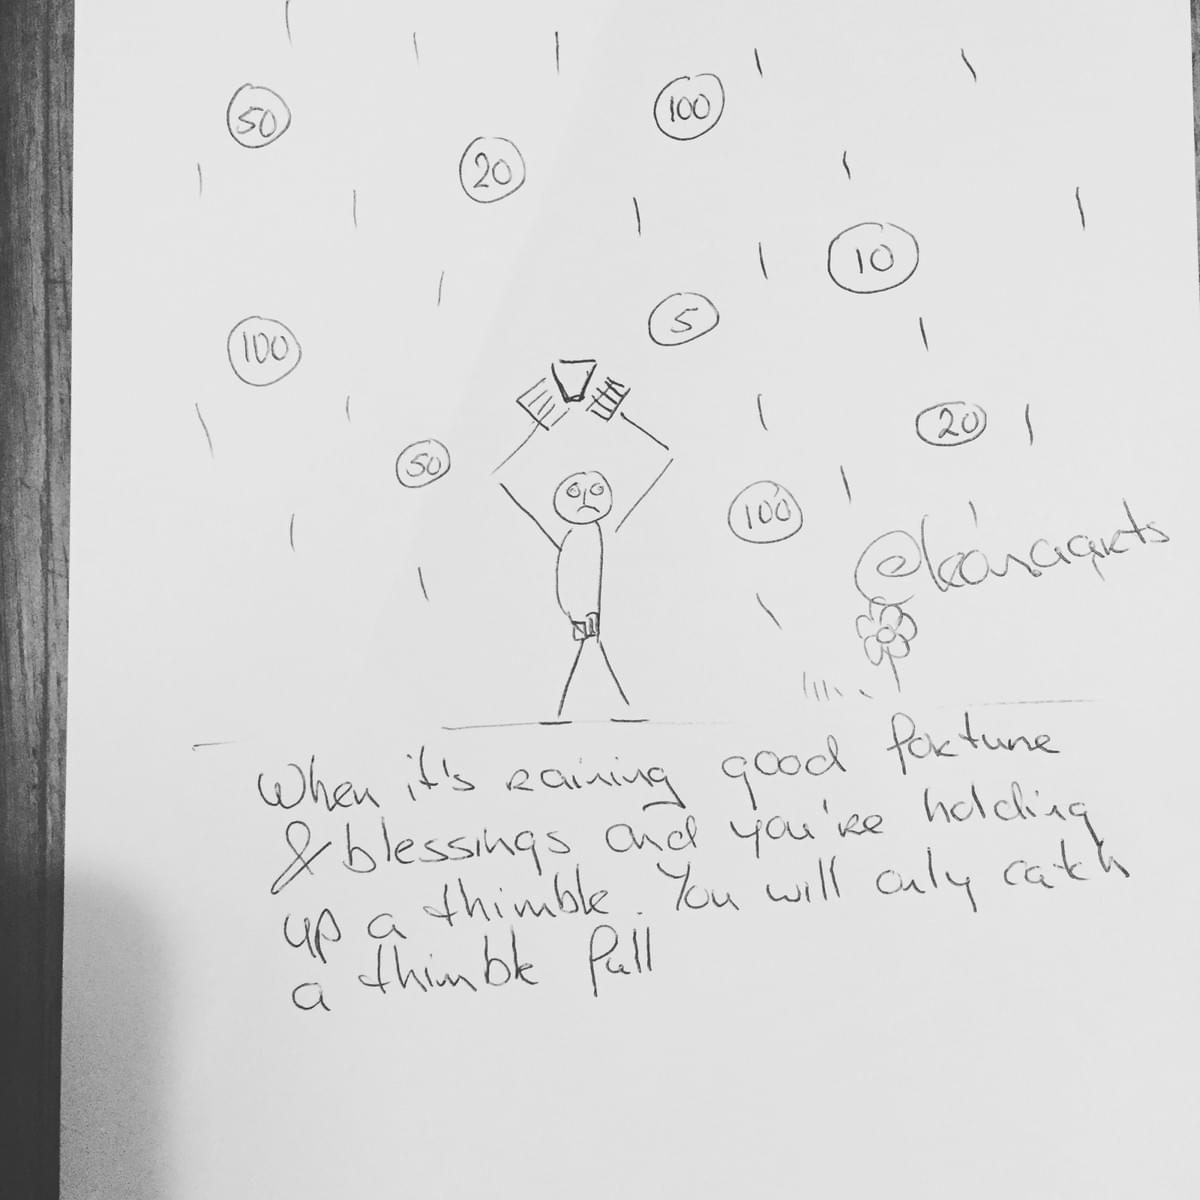 50
100
20
10
5
100
20
50
100
When it's raining good fortune
& blessings and you're holding
up a thimble. You will only catch
a thimble full